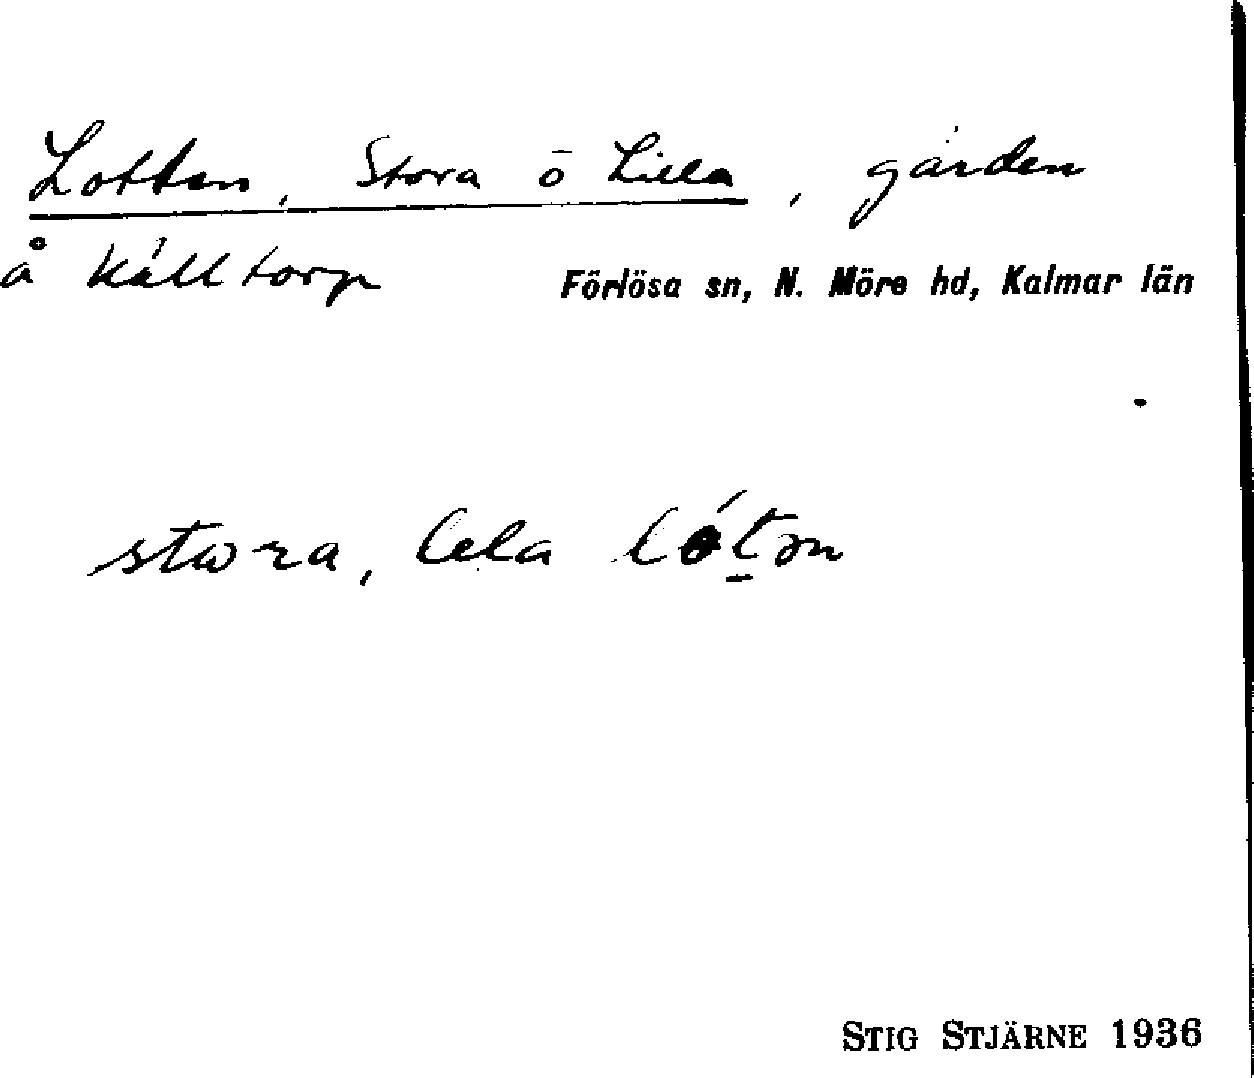 Lotten, Stora o Lilla, gården
å Källtorp Förlösa sn, N. Möre hd, Kalmar län
stωra, lela
STIG STJÄRNE 1936